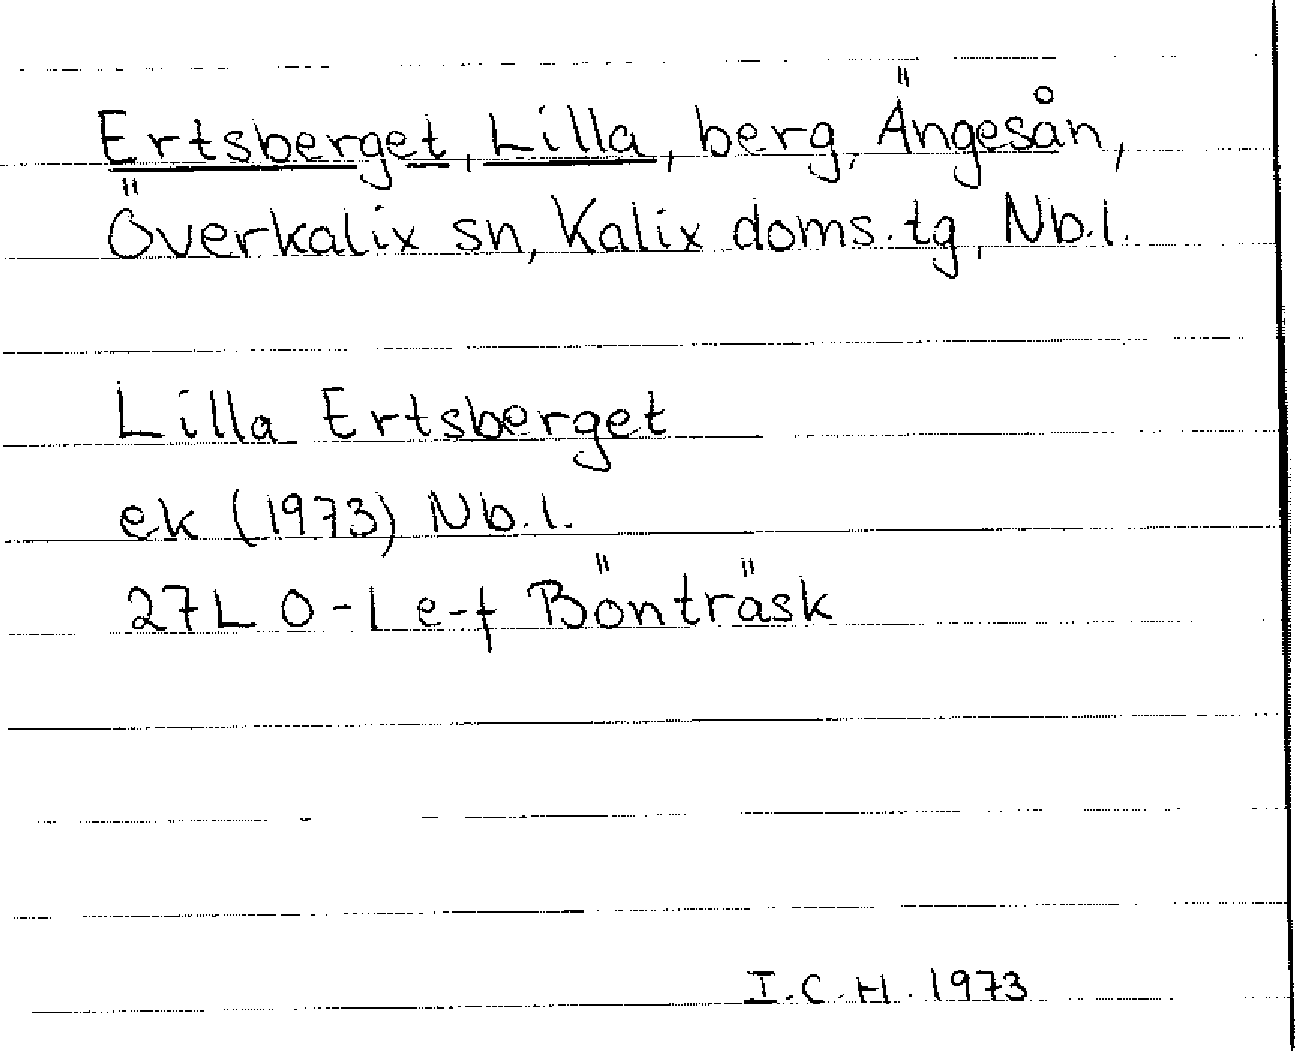 Ertsberget, Lilla, berg, Ängesån,
Överkalix sn, Kalix doms.tg, Nb.l.
Lilla Ertsberget
ek (1973) Nb.l.
27L 0-1 e-f Bönträsk
I.C.H. 1973